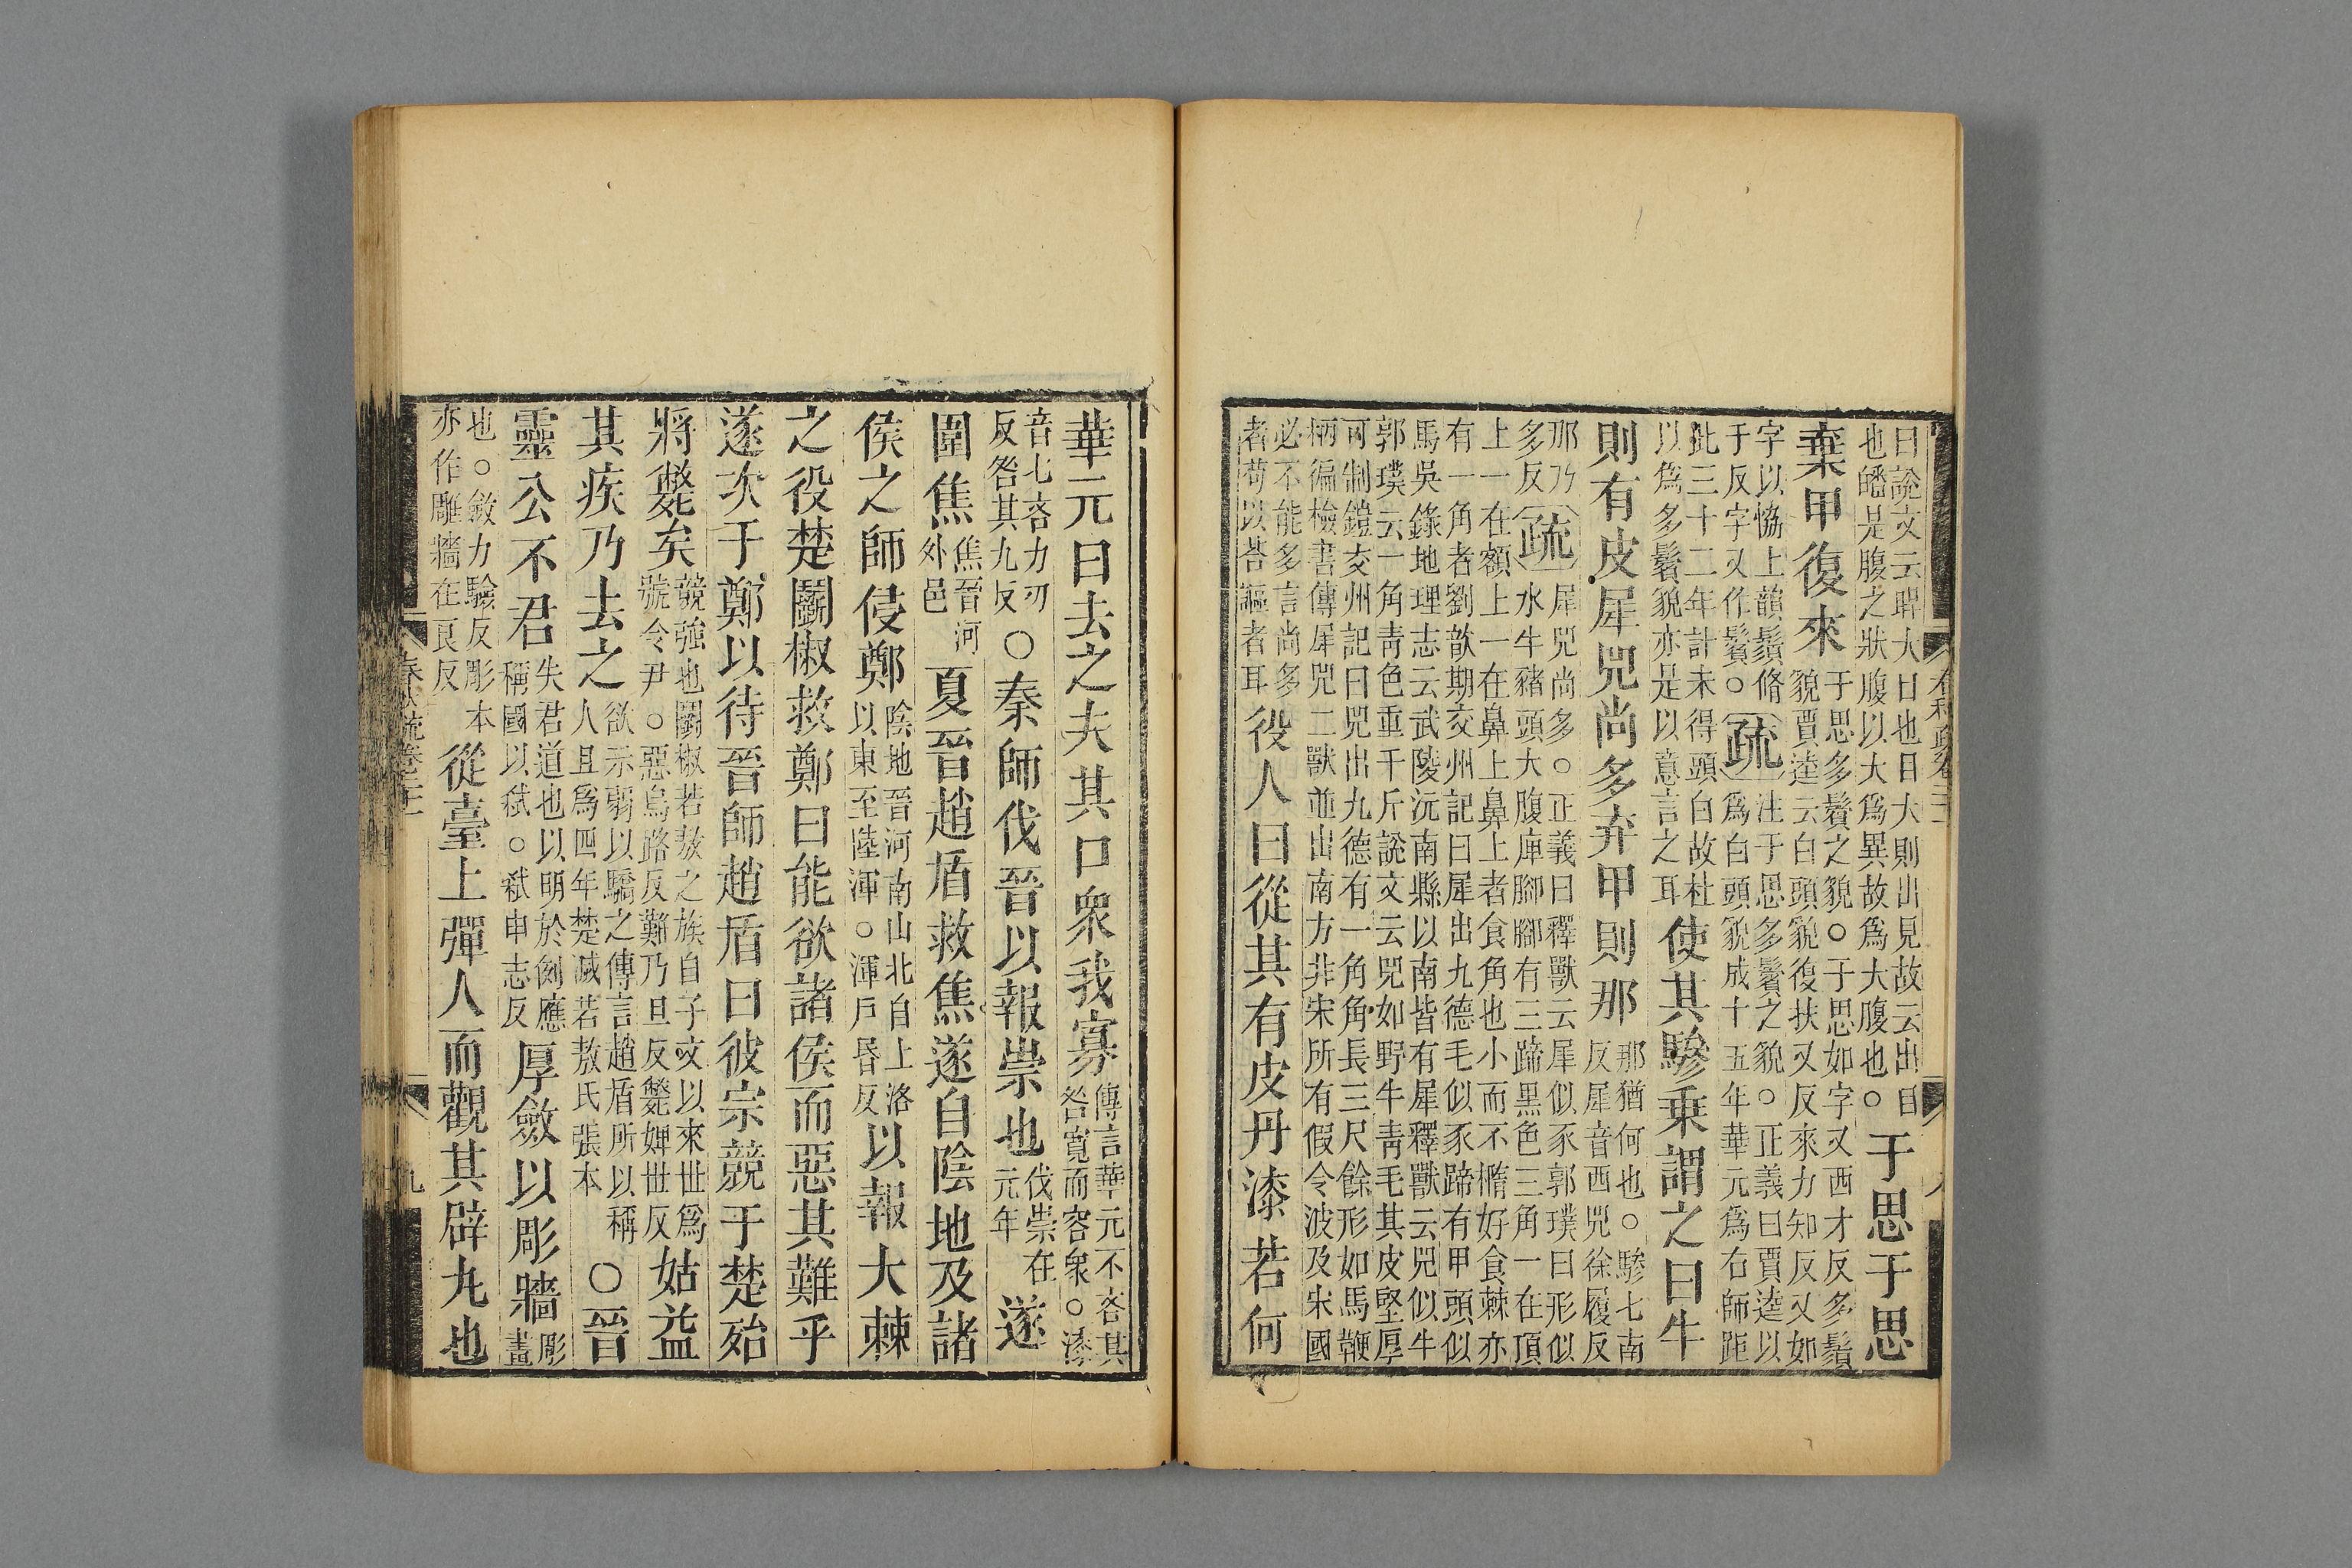 曰說文云睅大目也目大則出見故云出目
也皤是腹之狀腹以大爲異故爲大腹也○
于思于思
棄甲復來
于思多鬢之貌○于思如字又西才反多鬚
貌賈逵云白頭貌復扶又反來力知反又如
字以恊上韻鬚脩
于反字又作鬚○
疏
注于思多鬢之貌○正義曰賈逵以
爲白頭貌成十五年華元爲右師距
此三十二年計未得頭白故杜
以爲多鬢貌亦是以意言之耳
使其驂乗謂之曰牛
則有皮犀兕尚多弃甲則那
那猶何也○驂七南
反犀音西兕徐履反
那乃
多反
疏
犀兕尚多○正義曰釋獸云犀似豕郭璞曰形似
水牛豬頭大腹庳腳腳有三蹄黑色三角一在頂
上一在額上一在鼻上鼻上者食角也小而不橢好食棘亦
有一角者劉歆期交州記曰犀出九德毛似豕蹄有甲頭似
馬吳錄地理志云武陵沅南縣以南皆有犀釋獸云兕似牛
郭璞云一角靑色重千斤說文云兕如野牛靑毛其皮堅厚
可制鎧交州記曰兕出九德有一角角長三尺餘形如馬鞭
柄徧檢書傳犀兕二獸並出南方非宋所有假令波及宋國
必不能多言尚多
者苟以荅謳者耳
役人曰從其有皮丹漆若何
華元曰去之夫其口衆我寡
傳言華元不吝其
咎寬而容衆○漆
音七吝力刃
反咎其九反
○秦師伐晉以報崇也
伐崇在
元年
遂
圍焦
焦晉河
外邑
夏晉趙盾救焦遂自陰地及諸
侯之師侵鄭
陰地晉河南山北自上洛
以東至陸渾○渾戶昬反
以報大棘
之役楚鬭椒救鄭曰能欲諸侯而惡其難乎
遂次于鄭以待晉師趙盾曰彼宗競于楚殆
將斃矣
競強也鬭椒若敖之族自子文以來世爲
號令尹○惡烏路反難乃旦反斃婢世反
姑益
其疾乃去之
欲示弱以驕之傳言趙盾所以稱
人且爲四年楚滅若敖氏張本
○晉
靈公不君
失君道也以明於例應
稱國以弒○弒申志反
厚斂以彫牆
彫
畫
也○斂力驗反彫本
亦作雕牆在良反
從臺上彈人而觀其辟丸也
春秋疏卷二十一
九